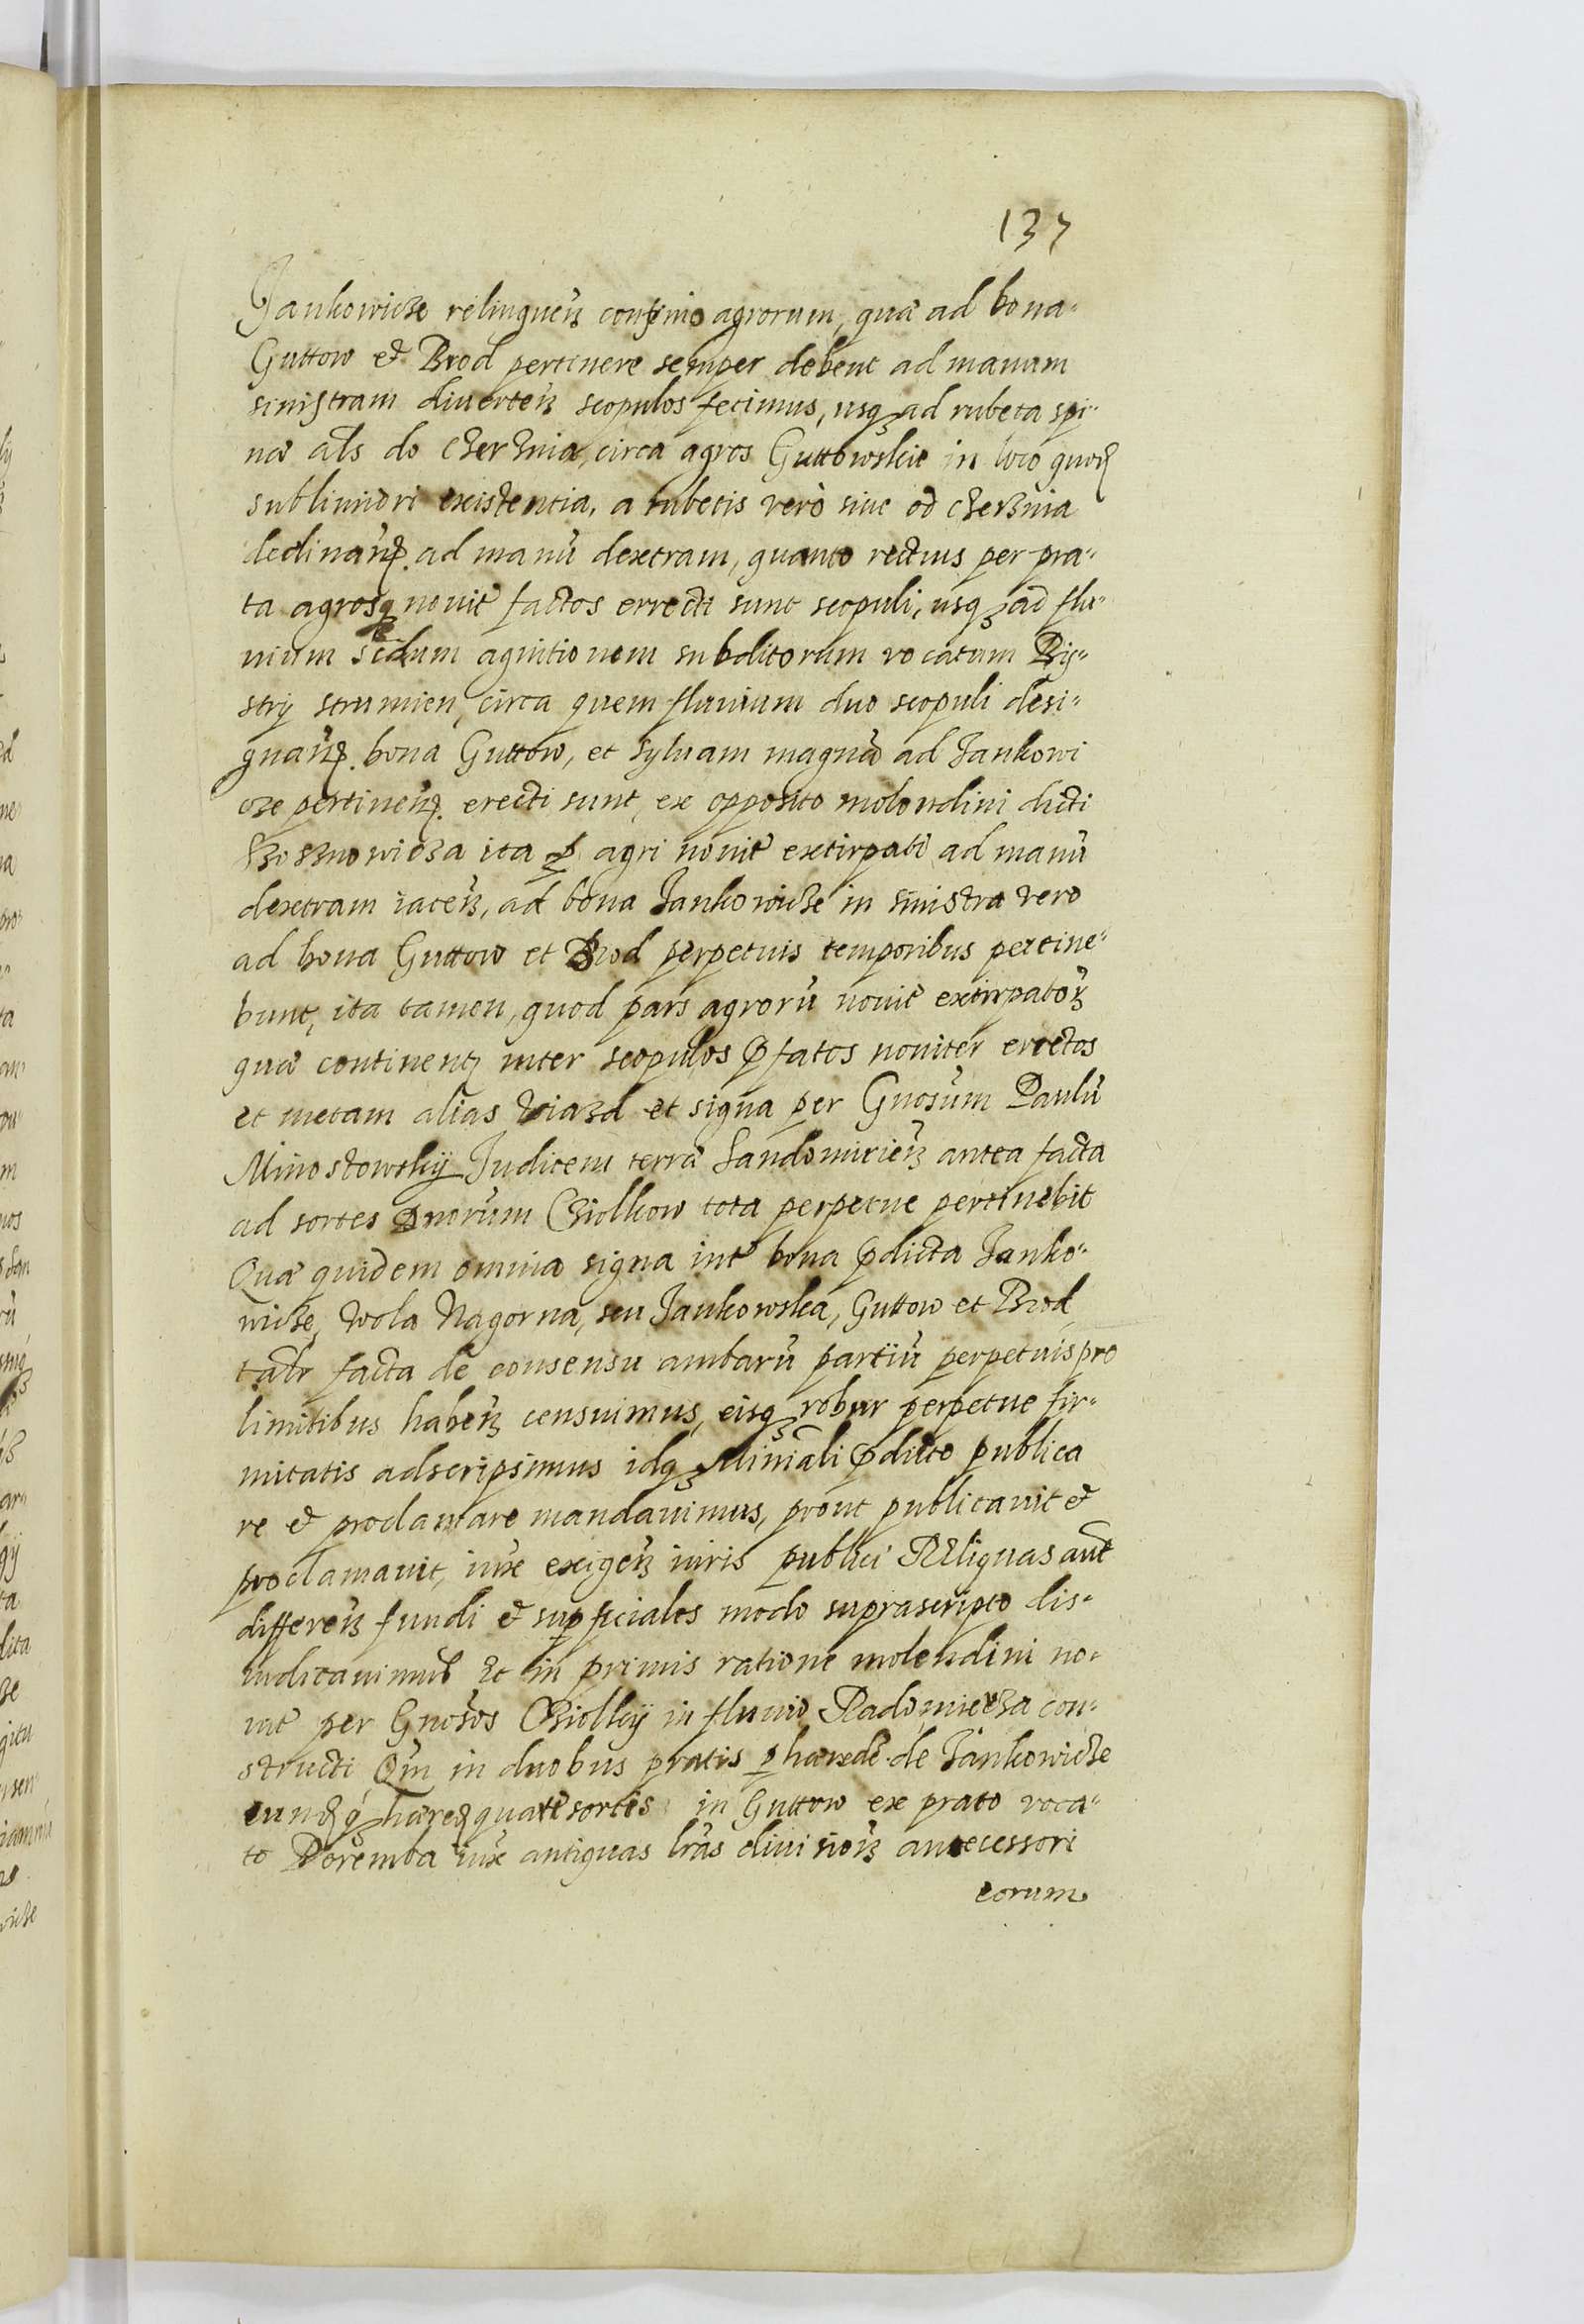 137
Jankowicze relinquen̄ confinio agrorum, quæ ad bona
Guttow et Brod pertinere semper debent ad manum
sinistram diverten̄ scopulos fecimus, usq̨ ad rubeta spi-
næ als do czerznia, circa agros Guttowskie in loco quod
sublimiori existentia, a rubetis verò siue od czerznia
declinan̄d. ad manū dextram, quanto rectius per pra-
ta agrosq̨ novit̄ factos errecti sunt scopuli, usq̨ ad flu-
uium scdum agnitionem subditorum vocatum Bis-
strÿ strumien, circa quem fluuium duo scopuli desi-
gnan̄d. bona Guttow, et syluam magnā ad Jankowi
cze pertinen̄. erecti sunt, ex opposito molendini dicti
ita q̨ agri novit̄ extirpati ad manū
dextram iacen̄, ad bona Jankowicze in sinistra vero
ad bona Guttow et Brod perpetuis temporibus pertine-
bunt, ita tamen, quod pars agrorū novit̄ extirpator̄
quæ continent̨ inter scopulos p̄fatos noviter erectos
et metam alias Wiazd et signa per Gnosūm Paulū
Minostowskÿ Judicem terræ Sandomirien̄ antea facta
ad sortes Dnorum Ciolkow tota perpetue pertinebit
Quæ quidem omnia signa int̄ bona p̄dicta Janko-
wicze, Wola Nagorna, seu Jankowska, Guttow et Brod
talr̄ facta de consensu ambarū partiū perpetuis pro
limitibus haben̄ censuimus, eisq̨ robur perpetue fir-
mitatis adscripsimus idq̨ Mini̅ali p̄dicto publica
re et proclamare mandavimus, prout publicavit et
proclamavit, iuxᵉ exigen̄ iuris publici Reliquas aut̄
differen̄ fundi et sup̱ficiales modo suprascripto dis-
iudicavimus Et in primis ratione molendini no-
vit̄ per Gnosōs Ciolkÿ in fluvio Radomierza con-
structi Qm̄ in duobus pratis p̱ hæredē. de Jankowicze
sortis in Guttow ex prato voca-
to Poremba iuxᵉ antiquas lrās divisiōn̄ antecessori
eorum